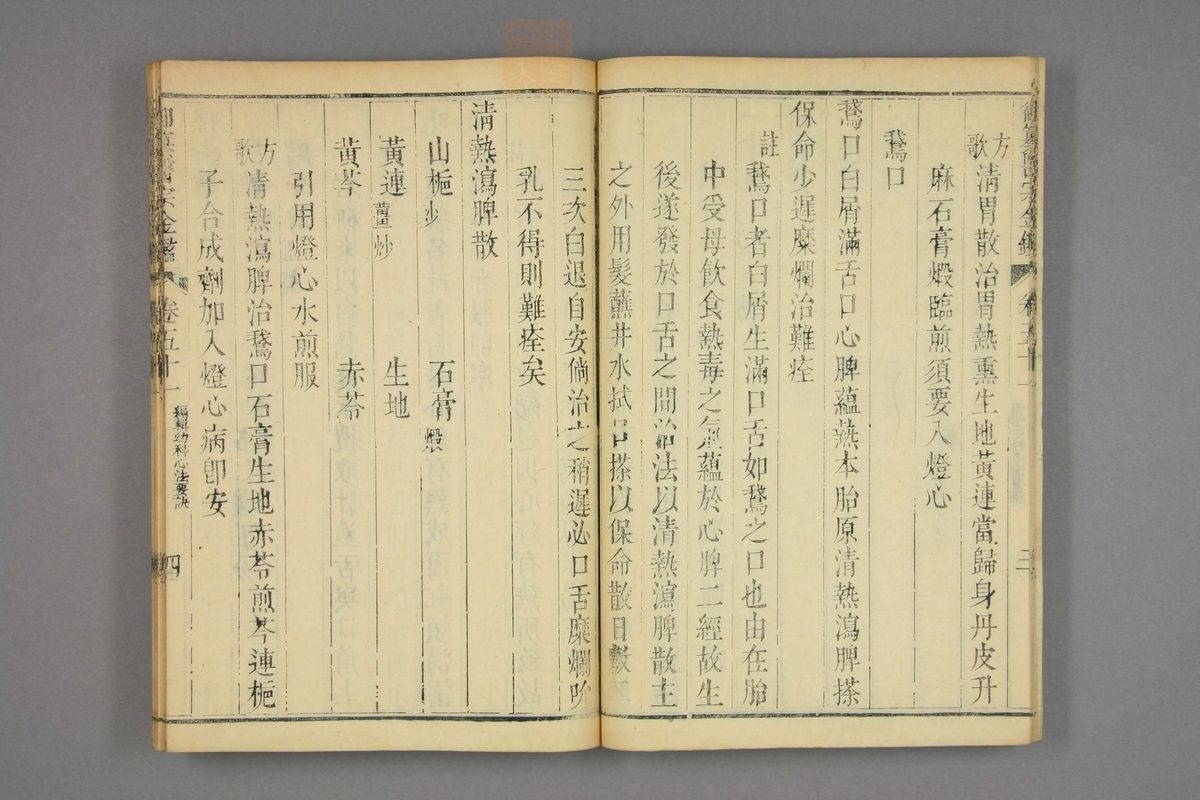 方歌 清胃散治胃熱熏生地黃連當歸身丹皮升
麻石膏煅臨煎須要入燈心
鵞口
鵞口白屑滿舌口心脾蘊熱本胎原清熱瀉脾搽
保命少遲糜爛治難痊
註 鵞口者白屑生滿口舌如鵞之口也由在胎
中受母飲食熱毒之氣蘊於心脾二經故生
後遂發於口舌之間治法以清熱瀉脾散主
之外用髮蘸井水拭口搽以保命散日敷
三次白退自安倘治之稍遲必口舌糜爛吮
乳不得則難痊矣
清熱瀉脾散
山梔炒 石膏煅
黃連薑炒 生地
黃芩 赤苓
引用燈心水煎服
方歌 清熱瀉脾治鵞口石膏生地赤苓煎芩連梔
子合成劑加入燈心病卽安
金鑑 卷五十一 編輯幼科心法要訣 四